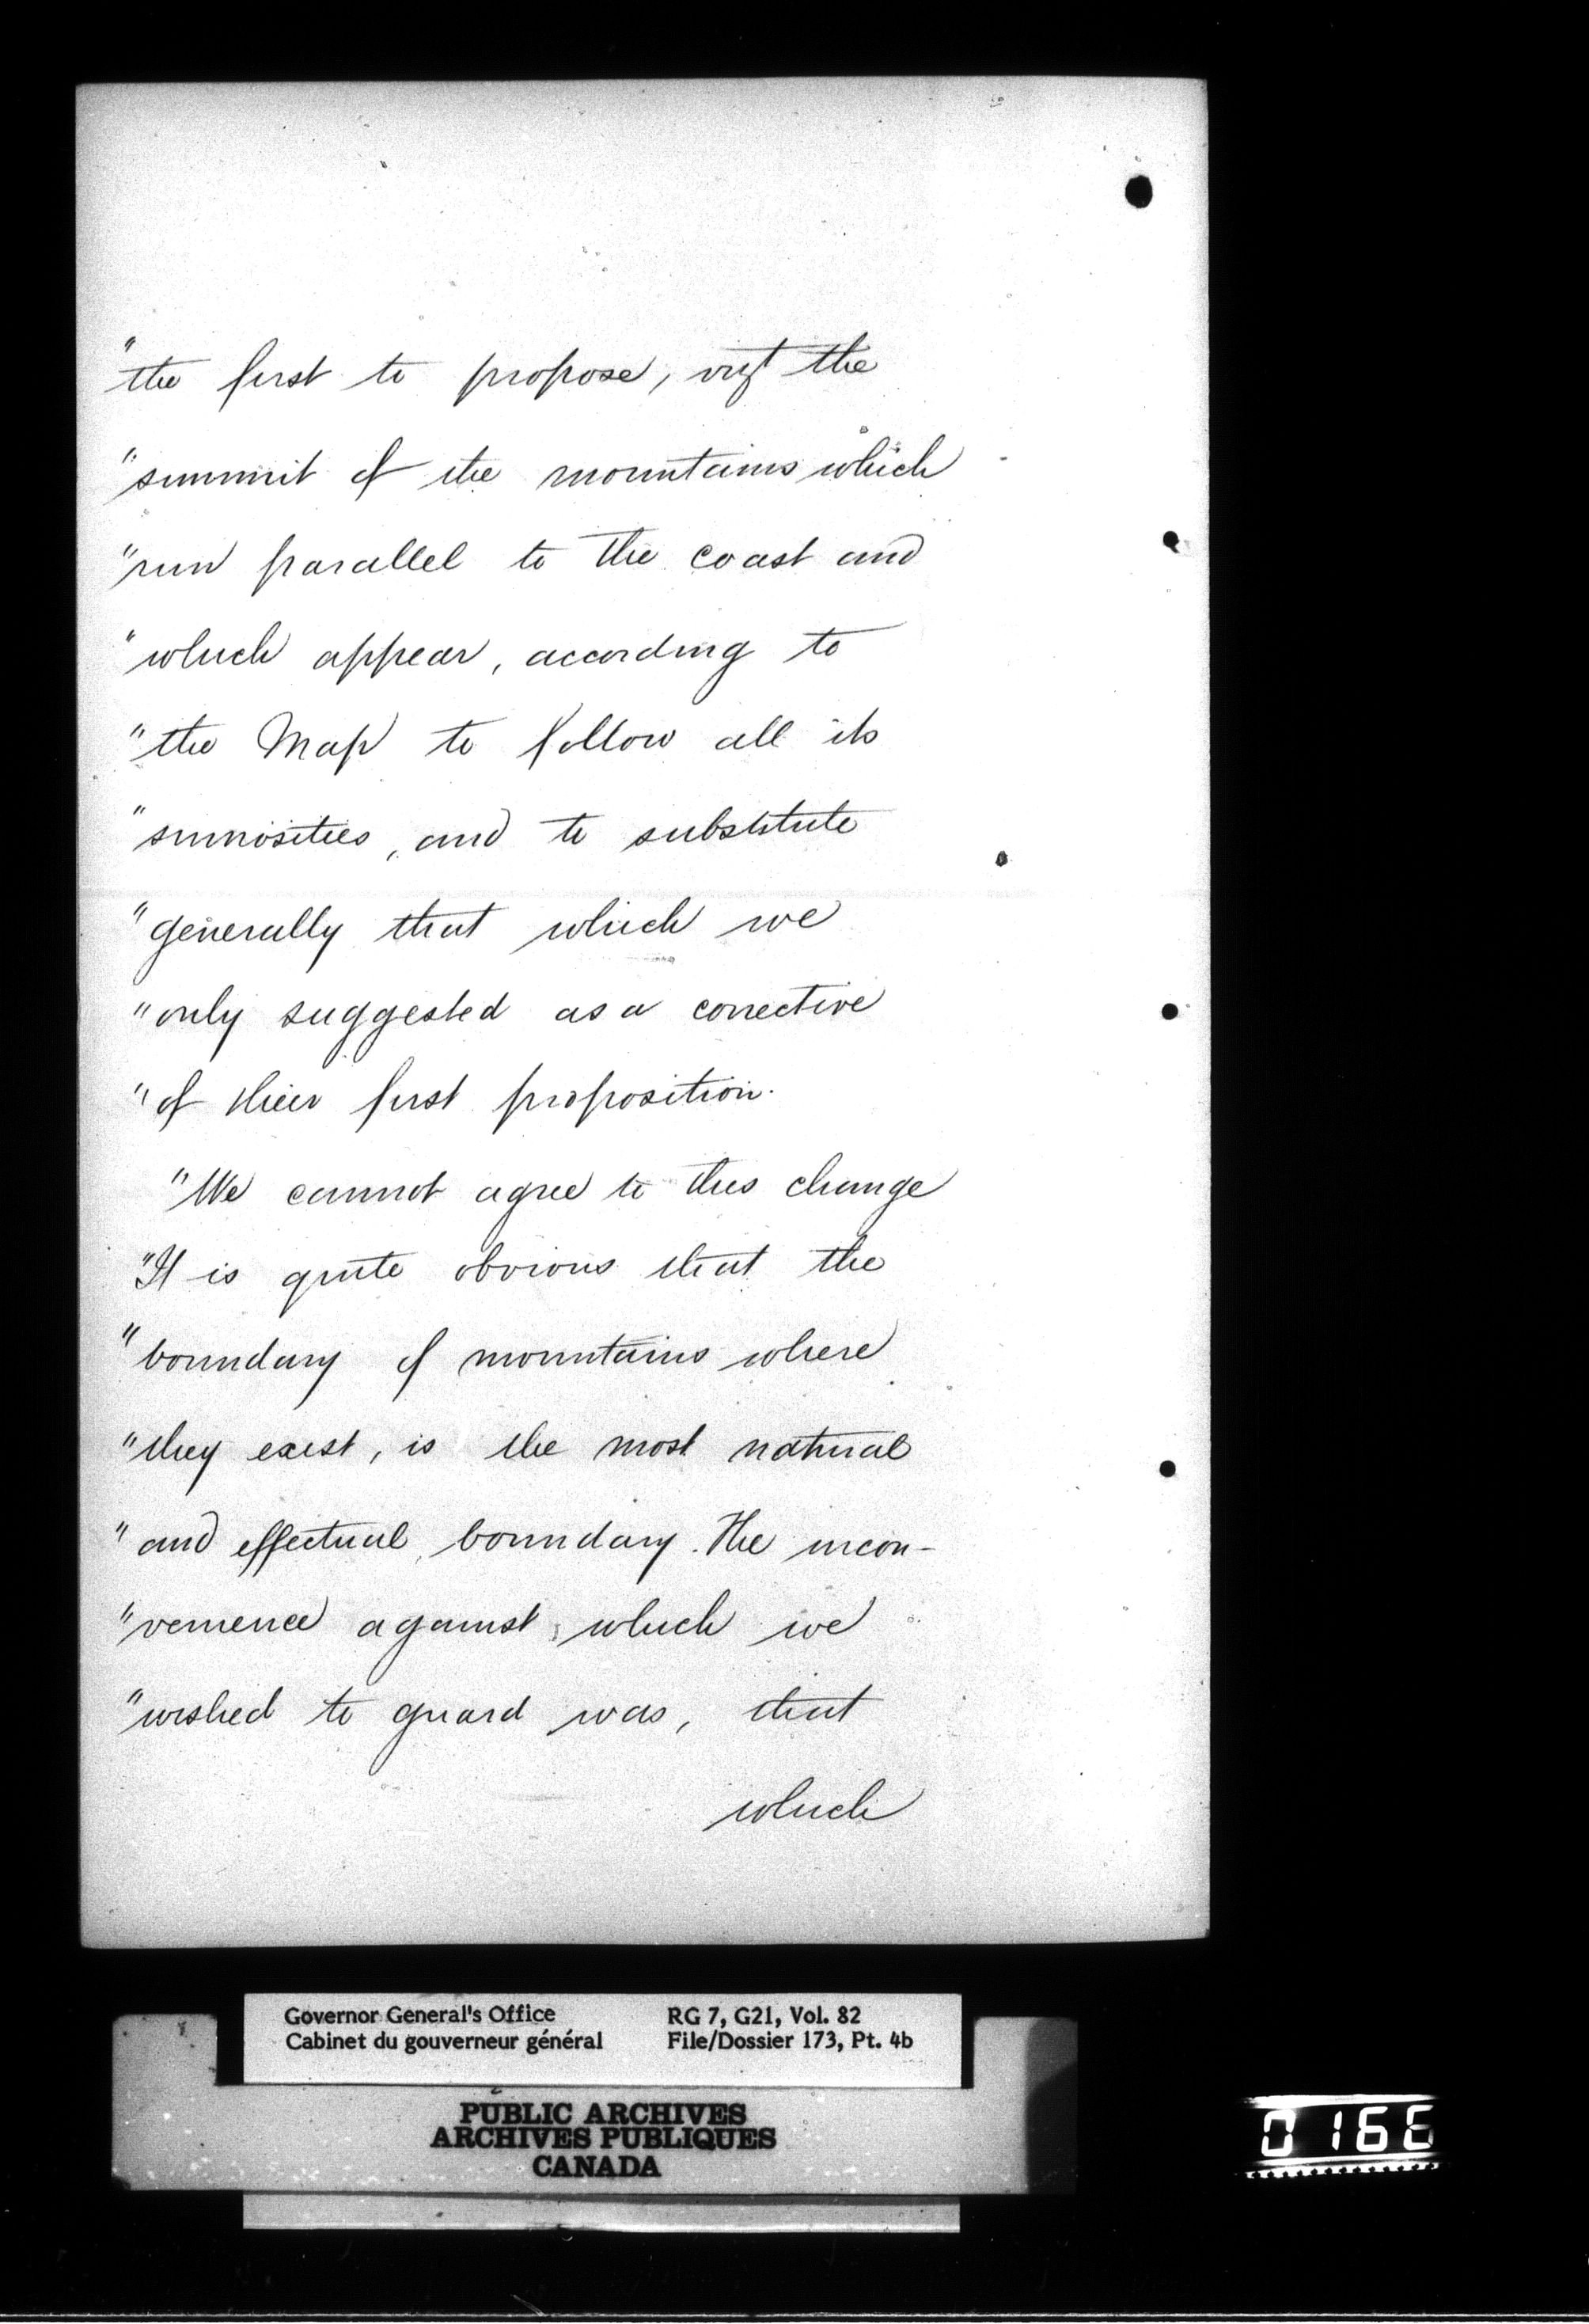 "the first to propose, vizt the
"summit of the mountains which
"run parallel to the coast and
"which appear, according to
"the Map to follow all its
"sinuosities, and to substitute
"generally that which we
"only suggested as a corrective
"of their first proposition.
"We cannot agree to this change
"It is quite obvious that the
"boundary of mountains where
"they exist, is the most natural
"and effectual boundary. The incon-
"venience against which we
"wished to guard was, that
which
Governor General's Office
Cabinet du gouverneur général
RG 7, G21, Vol. 82
File/Dossier 173, Pt. 4b
PUBLIC ARCHIVES
ARCHIVES PUBLIQUES
CANADA